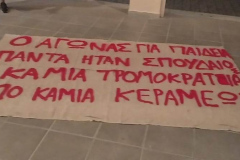 Ο ΑΓΩΝΑΣ ΓΙΑ ΠΑΙΔΕΙ
ΠΑΝΤΑ ΗΤΑΝ ΣΠΟΥΔΑΙΟ
ΚΑΜΙΑ ΤΡΟΜΟΚΡΑΤΙΑ
ΑΠΟ ΚΑΜΙΑ ΚΕΡΑΜΕΩΣ